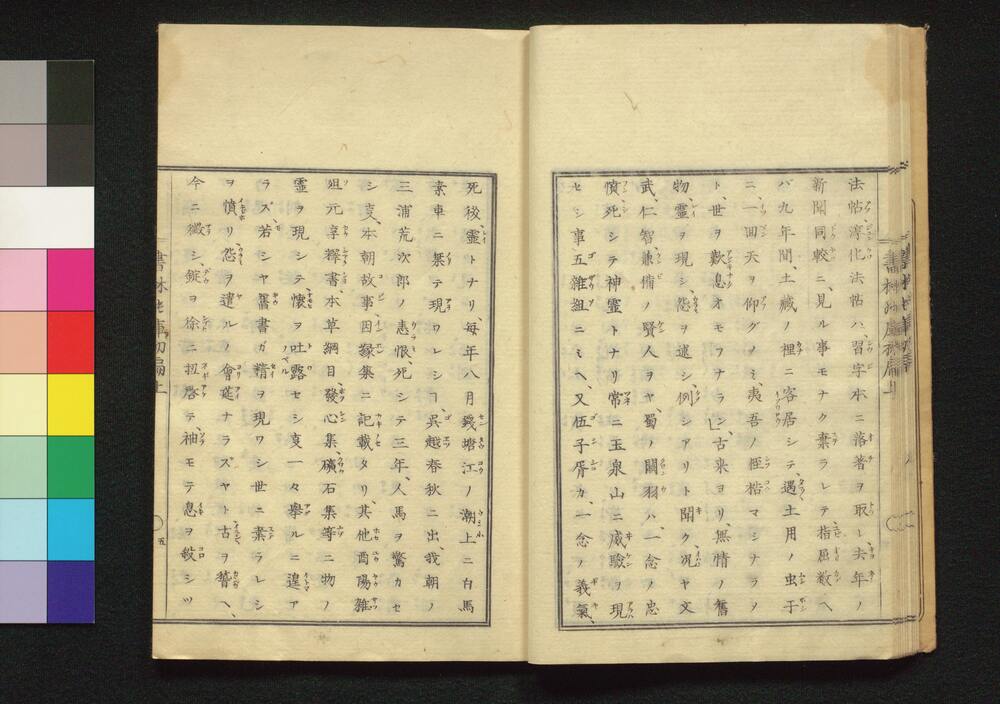 法帖淳化法帖ハ、習字本ニ落著ヲ取レ去年ノ
新聞同較ニ、見ル事モナク棄ラレテ指屈数ヘ
バ九年間、土臓ノ裡ニ客居シテ、遇土用ノ虫干
ニ、一回天ヲ仰グノミ、夷吾ノ桎梏マシナラメ
ト、世ヲ歎息オモフナラン、古来ヨリ、無情ノ舊
物霊ヲ現シ、怨ヲ逑シ、例シアリト聞ク、况ヤ文
武、仁智兼備ノ賢人ヲヤ、蜀ノ關羽ハ、一念ノ忠
憤死シテ神霊トナリ、常ニ玉泉山ニ威驗ヲ現
セシ事五雑組ニミヘ、又伍子胥カ、一念ノ義氣、
死後霊トナリ、毎年八月錢塘江ノ潮上ニ白馬
素車ニ椉テ現ワレシコ、呉越春秋ニ出、我朝ノ
三浦荒次郎ノ恚恨、死シテ三年、人馬ヲ驚カセ
シ叓、本朝故事、因縁集ニ記載タリ、其他酉陽雑
俎元享釋書、本草綱目、發心集、礦石集等ニ物ノ
霊ヲ現シテ、懐ヲ吐露セシ叓一々擧ルニ遑ア
ラズ、若シヤ舊書ガ精ヲ現ワシ世ニ棄ラレシ
ヲ憤リ怨ヲ遣ルノ會莚ナラズヤト、古ヲ稽ヘ、
今ニ徴シ、錠ヲ徐ニ扭啓テ、袖モテ息ヲ殺シツ
五